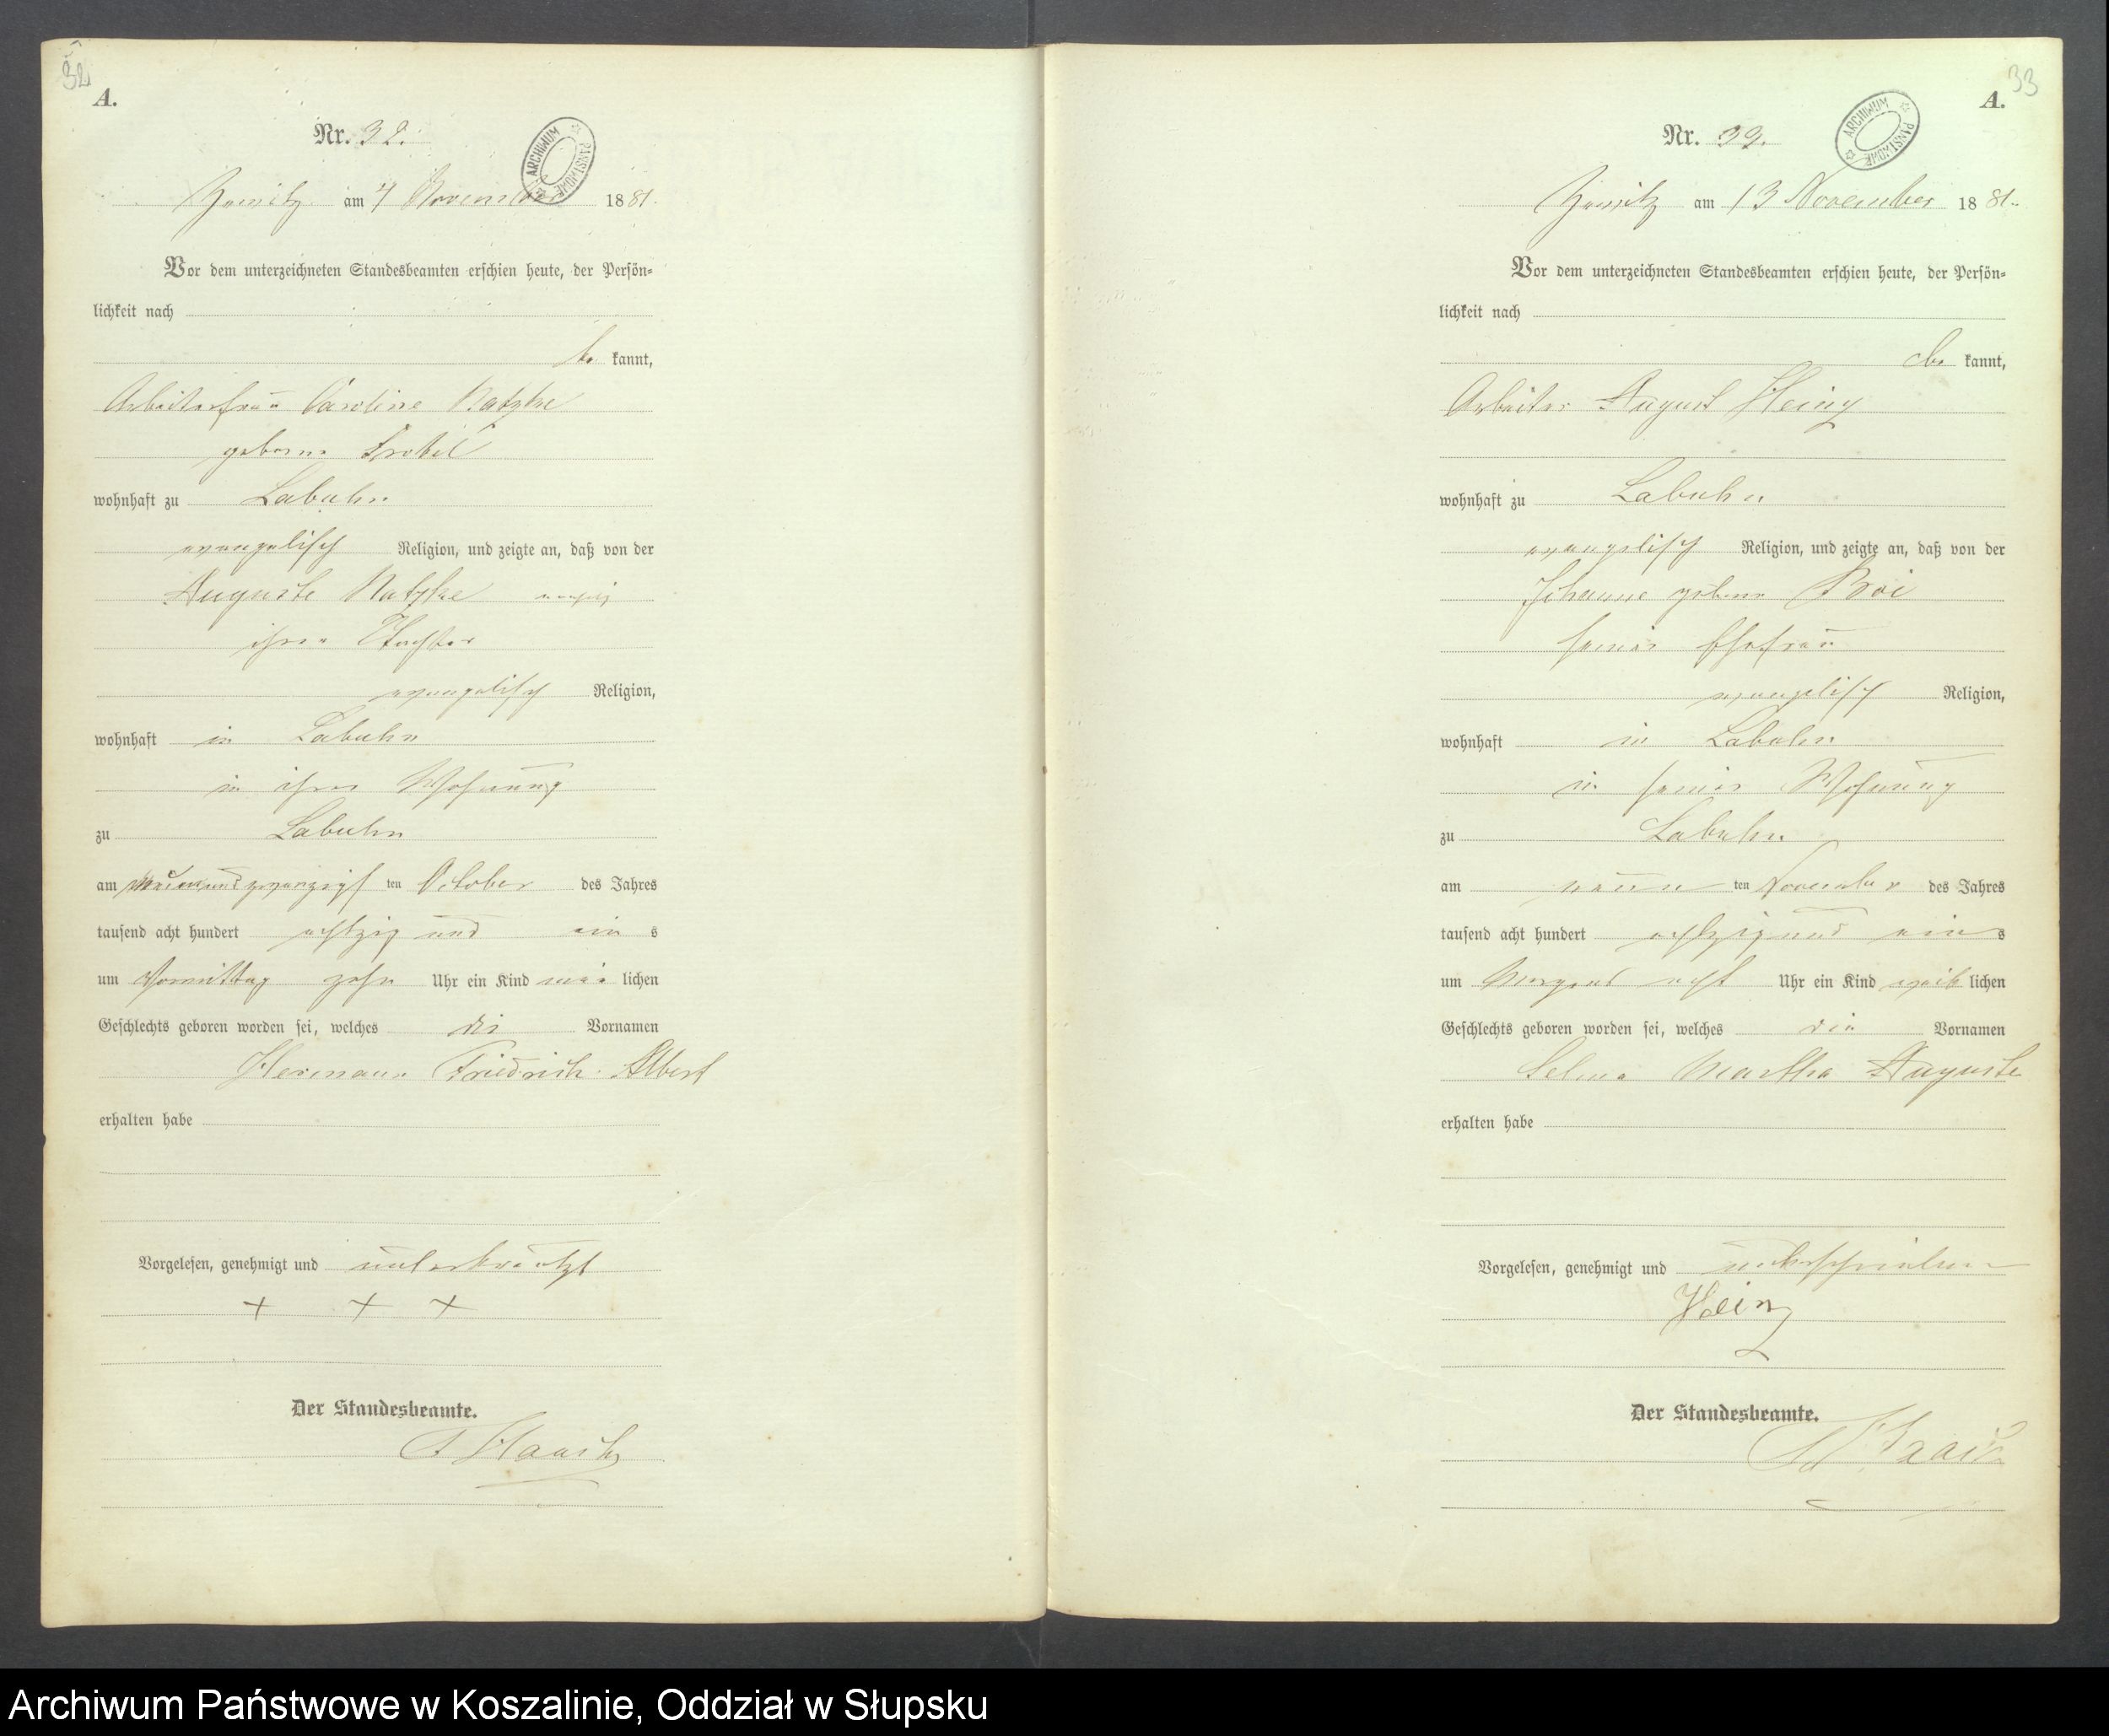 32
A.
Nr. 32.
ARCHIWUM PAŃSTWOWE
am 4 November 1881.
Vor dem unterzeichneten Standesbeamten erschien heute, der Persön=
lichkeit nach
be kannt,
Arbeiterfrau Caroline Natzke
geborne
wohnhaft zu Labuhn
evangelisch Religion, und zeigte an, daß von der
Auguste Natzke
ihrer Tochter
evangelisch Religion,
wohnhaft in Labuhn
in ihrer Wohnung
zu Labuhn
am neunundzwanzigsten October des Jahres
tausend acht hundert achtzig und ein s
um Vormittag zehn Uhr ein Kind lichen
Geschlechts geboren worden sei, welches die Vornamen
Hermann Friedrich Albert
erhalten habe
Vorgelesen, genehmigt und unterkreuzt
+ + +
Der Standesbeamte.
33
A.
Nr. 33.
ARCHIWUM PAŃSTWOWE
am 13 November 1881.
Vor dem unterzeichneten Standesbeamten erschien heute, der Persön=
lichkeit nach
be kannt,
Arbeiter August Heinz
wohnhaft zu Labuhn
evangelisch Religion, und zeigte an, daß von der
Johanne geborne
seiner Ehefrau
evangelisch Religion,
wohnhaft in Labuhn
in seiner Wohnung
zu Labuhn
am neun ten November des Jahres
tausend acht hundert achtzig und ein s
um Morgens acht Uhr ein Kind weib lichen
Geschlechts geboren worden sei, welches die Vornamen
Selma Martha Auguste
erhalten habe
Vorgelesen, genehmigt und unterschrieben
Heinz
Der Standesbeamte.
Archiwum Państwowe w Koszalinie, Oddział w Słupsku